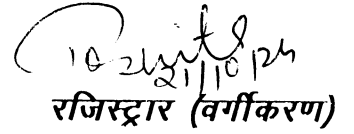 21/10/24
रजिस्ट्रार (वर्गीकरण)